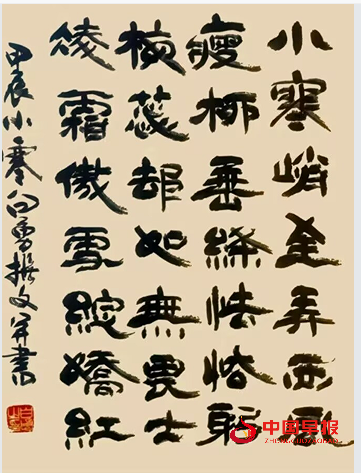 小寒峭至弄西風
瘦柳垂絲怯躬
梅蕊却如無畏士
凌霜傲雪綻嬌紅
甲辰小寒白勇撰文并書
中国早报